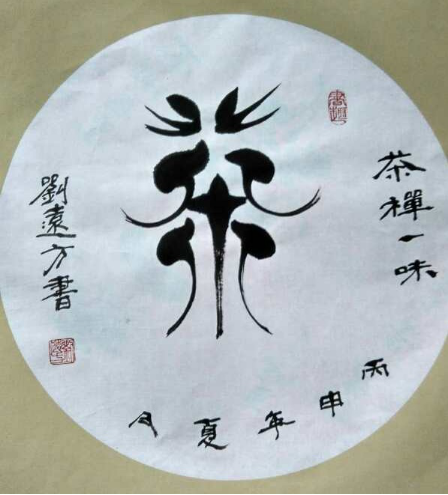 茶禪一味
茶
丙申年夏月
劉遠方書